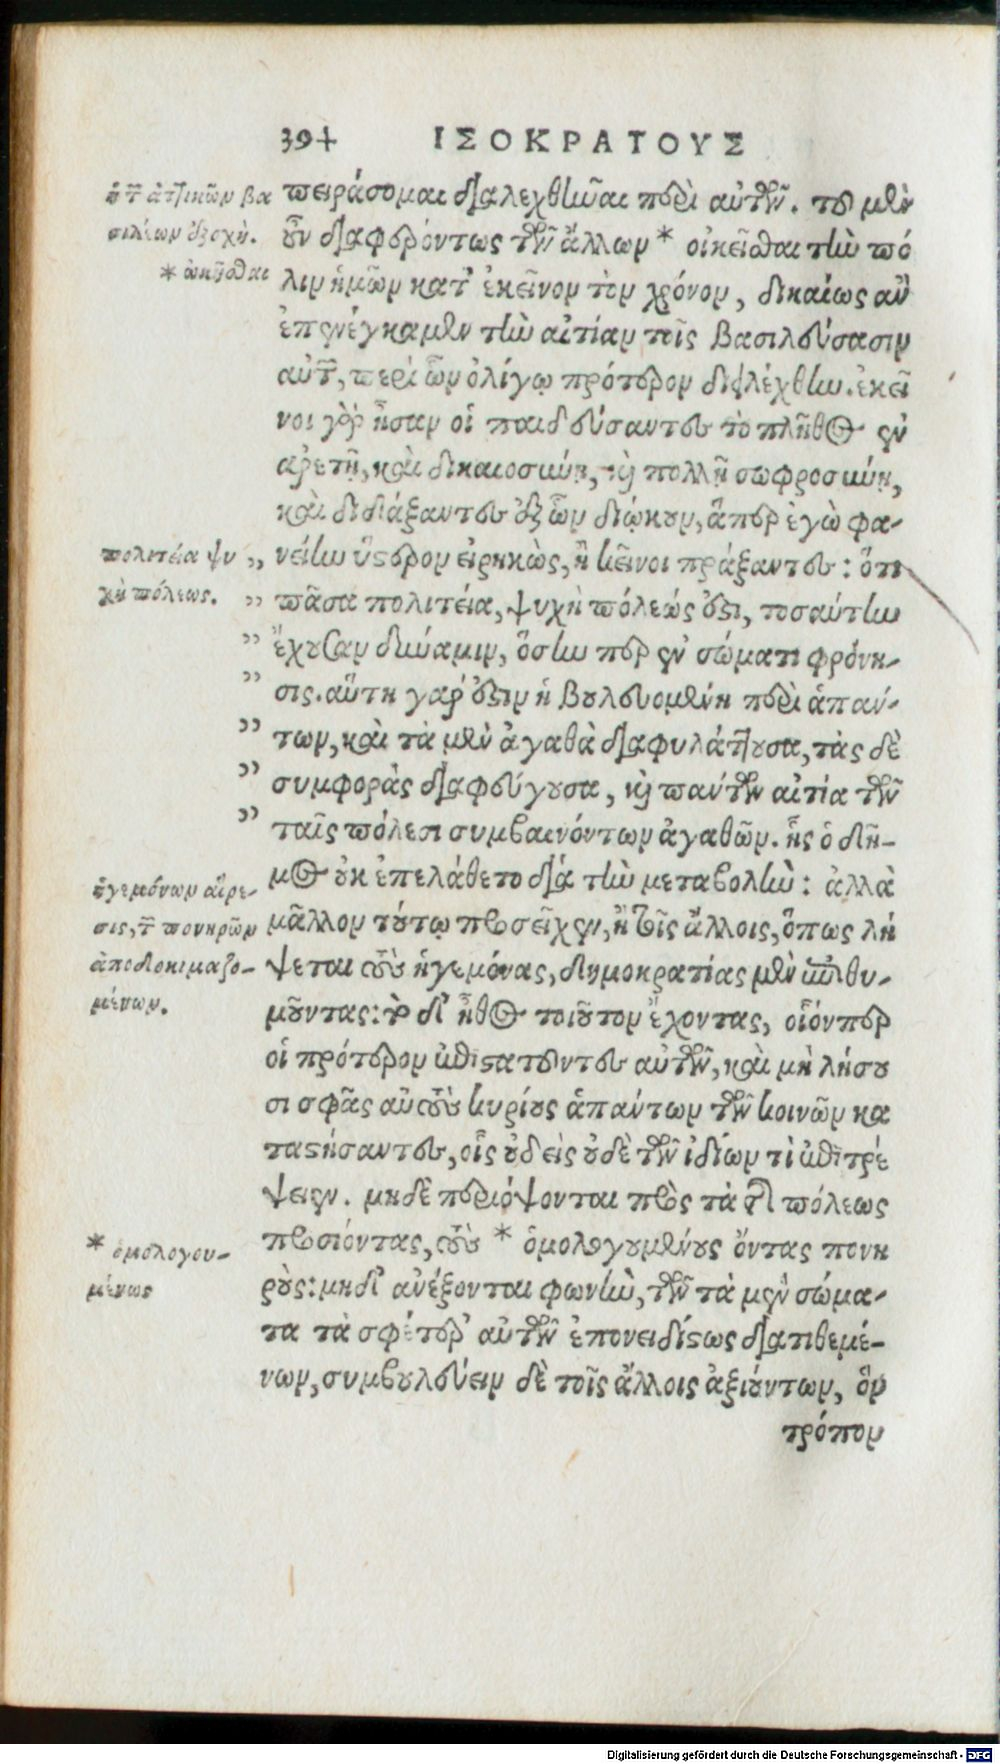 394 ΙΣΟΚΡΑΤΟΥΣ
ἡ τ῀ ἀττικῶν βα
σιλέων ἐξοχὴ.
* ᾠκῆσθαι
πειράσομαι διαλεχθῆναι περὶ αὐτῶν. τοῦ μὲν
οὖν διαφερόντως τῶν ἄλλων * οἰκεῖσθαι τὴν πό
λιν ἡμῶν κατ' ἐκεῖνον τὸν χρόνον, δικαίως ἂν
ἐπενέγκαιμεν τὴν αἰτίαν τοῖς βασιλεύσασιν
αὐτ῀, περὶ ὧν ὀλίγῳ πρότερον διελέχθην. ἐκεῖ
νοι γὰρ ἦσαν οἱ παιδεύσαντες τὸ πλῆθος ἐν
ἀρετῇ, καὶ δικαιοσύνῃ, καὶ πολλῇ σωφροσύνῃ,
καὶ διδάξαντες ἐξ ὧν διῴκουν, ἅπερ ἐγὼ φα-
πολιτεία ψυ
χὴ πόλεως.
„ νείην ὕστερον εἰρηκὼς, ἢ κεῖνοι πράξαντες: ὅτι
„ πᾶσα πολιτεία, ψυχὴ πόλεώς ἐστι, τοσαύτην
„ ἔχουσαν δύναμιν, ὅσην περ ἐν σώματι φρόνη-
„ σις. αὕτη γάρ ἐστιν ἡ βουλευομένη περὶ ἁπάν-
„ των, καὶ τὰ μὲν ἀγαθὰ διαφυλάττουσα, τὰς δὲ
„ συμφορὰς διαφεύγουσα, καὶ πάντων αἰτία τῶν
„ ταῖς πόλεσι συμβαινόντων ἀγαθῶν. ἧς ὁ δῆ-
ἡγεμόνων αἵρε-
σις, τ῀ πονηρῶν
ἀποδοκιμαζο-
μένων.
μος οὐκ ἐπελάθετο διὰ τὴν μεταβολὴν: ἀλλὰ
μᾶλλον τούτῳ προσεῖχεν, ἢ τοῖς ἄλλοις, ὅπως λή
ψεται τοὺς ἡγεμόνας, δημοκρατίας μὲν ἐπιθυ-
μοῦντας: τὸ δ' ἦθος τοιοῦτον ἔχοντας, οἷόνπερ
οἱ πρότερον ἐπιστατοῦντες αὐτῶν, καὶ μὴ λήσου
σι σφᾶς αὐτοὺς κυρίους ἁπάντων τῶν κοινῶν κα
ταστήσαντες, οἷς οὐδεὶς οὐδὲ τῶν ἰδίων τὶ ἐπιτρέ
ψειεν. μηδὲ περιόψονται πρὸς τὰ τῆς πόλεως
* ὁμολογου-
μένως
προσιόντας, τοὺς * ὁμολογουμένους ὄντας πονη
ρούς: μηδ' ἀνέξονται φωνὴν, τῶν τὰ μὲν σώμα-
τα τὰ σφέτερ' αὐτῶν ἐπονειδίστως διατιθεμέ-
νων, συμβουλεύειν δὲ τοῖς ἄλλοις ἀξιούντων, ὃν
τρόπον
Digitalisierung gefördert durch die Deutsche Forschungsgemeinschaft - DFG